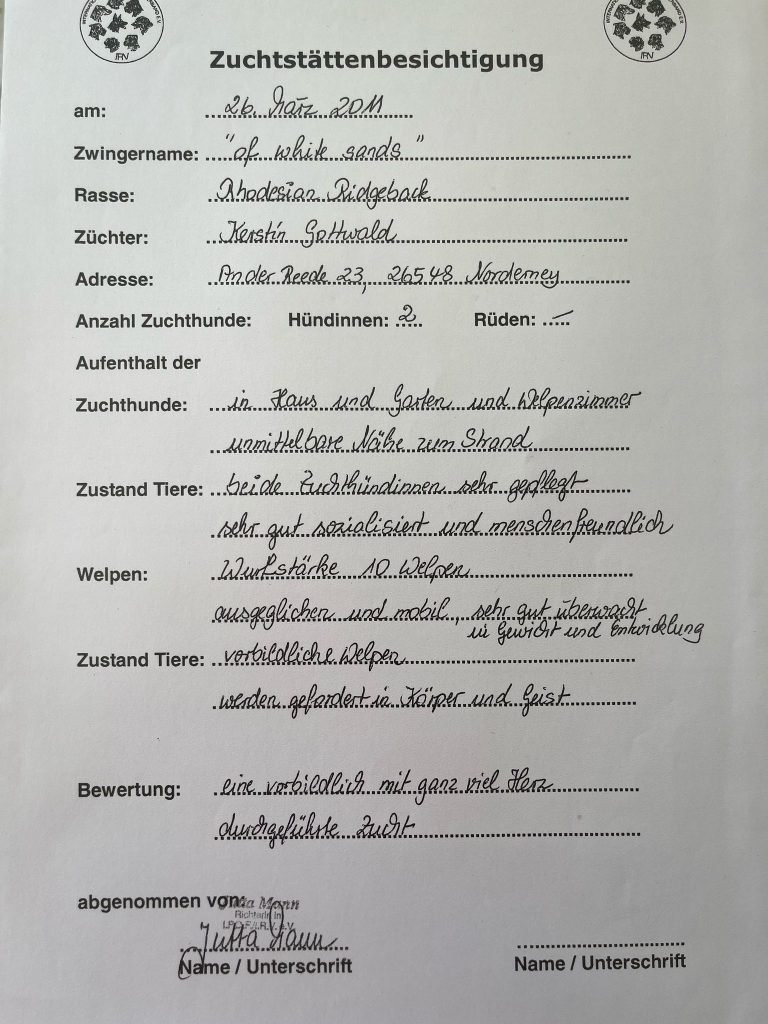 IRV
IRV
Zuchtstättenbesichtigung
am: 26. März 2011
Zwingername: "of white sands"
Rasse: Rhodesian Ridgeback
Züchter: Kerstin Gottwald
Adresse: An der Reede 23, 26548 Norderney
Anzahl Zuchthunde: Hündinnen: 2 Rüden: —
Aufenthalt der
Zuchthunde: in Haus und Garten und Welpenzimmer
unmittelbare Nähe zum Strand
Zustand Tiere: beide Zuchthündinnen sehr gepflegt
sehr gut sozialisiert und menschenfreundlich
Welpen: Wurfstärke 10 Welpen
ausgeglichen und mobil, sehr gut überwacht
in Gewicht und Entwicklung
Zustand Tiere: vorbildliche Welpen
werden gefordert in Körper und Geist
Bewertung: eine vorbildlich mit ganz viel Herz
durchgeführte Zucht
abgenommen von:
Richterin in
Name / Unterschrift
Name / Unterschrift